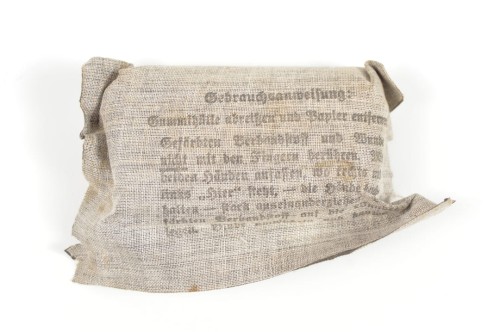 Gebrauchsanweisung:
Gummihülle abreißen und Papier entfern
Gefärbten Verbandstoff und Wund
nicht mit den Fingern berühren. M
beiden Händen anfassen, wo rechts
links „Hier“ steht, — die Hände
halten — stark auseinanderziehe
färbten Verbandstoff auf die
legen.